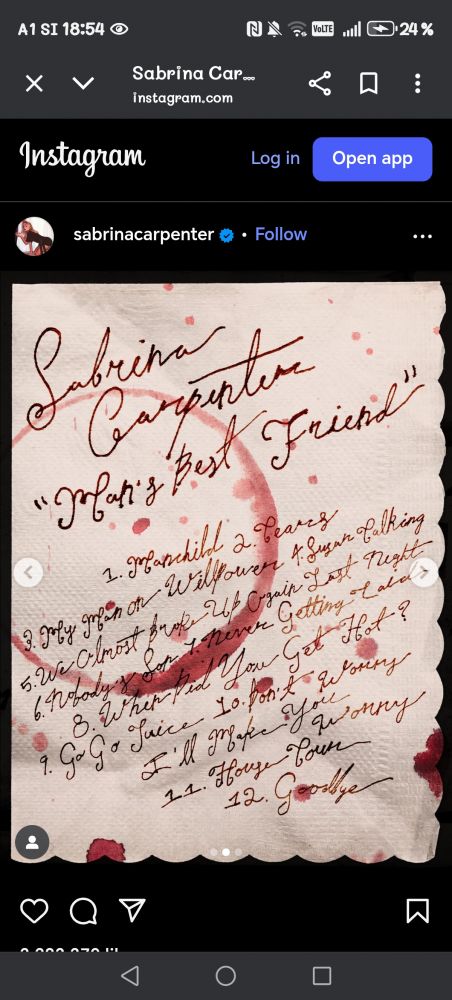 A1 SI 18:54
VoLTE 24 %
Sabrina Car...
instagram.com
Instagram
Log in
Open app
sabrinacarpenter • Follow
Sabrina
Carpenter
"Man's Best Friend"
1. Manchild 2. Tears
3. My Man on Willpower 4. Sugar Talking
5. We Almost Broke Up Again Last Night
6. Nobody's Son 7. Never Getting Laid
8. When Did You Get Hot?
9. Go Go Juice 10. Don't Worry
I'll Make You Worry
11. House Tour
12. Goodbye